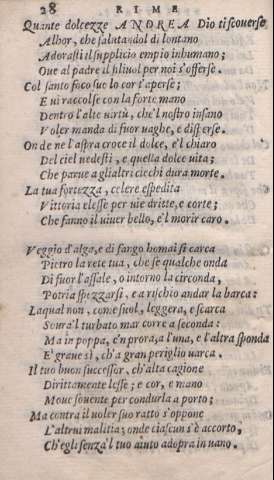 28 RIME
Quante dolcezze ANDREA Dio ti scoverse
Alhor, che salutandol di lontano
Adorasti il supplicio empio inhumano;
Oue al padre il figliuol per noi s'offerse.
Col santo foco suo lo cor t'aperse;
E ui raccolse con la forte mano
Dentro l'alte uertù, che'l nostro insano
Voler manda di fuor uaghe, e disperse.
On de ne l'aspra croce il dolce, e'l chiaro
Del ciel uedesti, e quella dolce uita;
Che parue a gli altri ciechi dura morte.
La tua fortezza, celere espedita
Vittoria elesse per uie dritte, e corte;
Che fanno il uiuer bello, e'l morir caro.
Veggio d'alga, e di fango homai sì carca
Pietro la rete tua, che se qualche onda
Di fuor l'assale, o intorno la circonda,
Potria spezzarsi, e a rischio andar la barca:
La qual non, come suol, leggera, e scarca
Soura'l turbato mar corre a seconda:
Ma in poppa, e'n prora, a l'una, e l'altra sponda
E' graue sì, ch'a gran periglio uarca.
Il tuo buon successor, ch'alta cagione
Dirittamente elesse; e cor, e mano
Moue souente per condurla a porto;
Ma contra il uoler suo ratto s'oppone
L'altrui malitia; onde ciascun s'è accorto,
Ch'egli senza'l tuo aiuto adopra in uano.